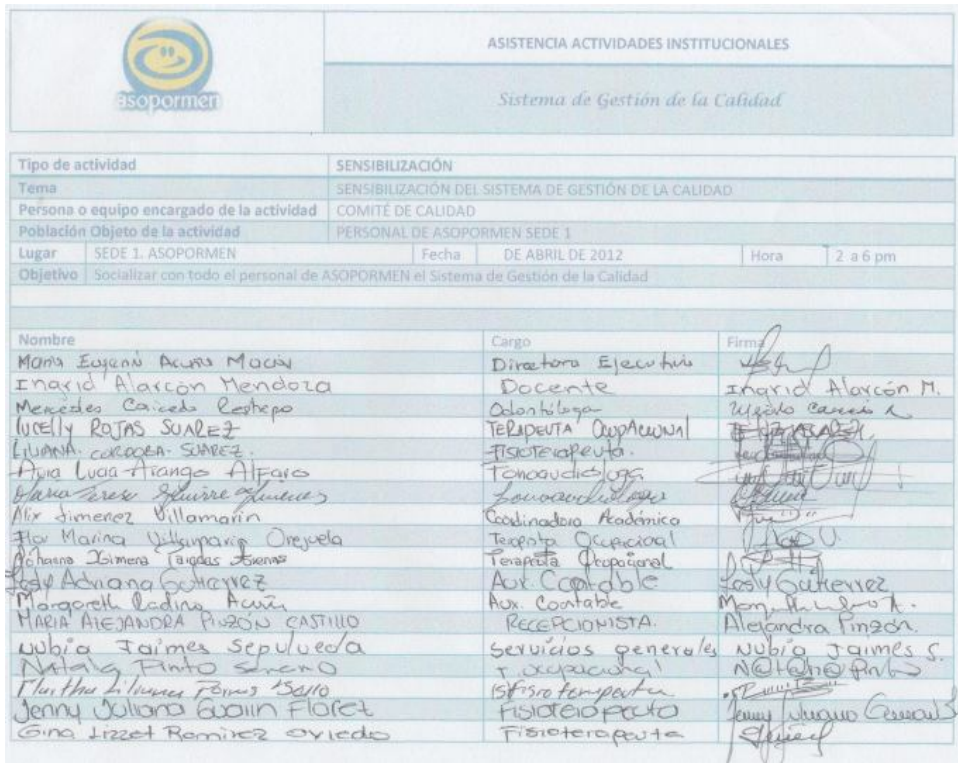 asopormen
ASISTENCIA ACTIVIDADES INSTITUCIONALES
Sistema de Gestión de la Calidad
Tipo de actividad SENSIBILIZACIÓN
Tema SENSIBILIZACIÓN DEL SISTEMA DE GESTIÓN DE LA CALIDAD
Persona o equipo encargado de la actividad COMITÉ DE CALIDAD
Población Objeto de la actividad PERSONAL DE ASOPORMEN SEDE 1
Lugar SEDE 1. ASOPORMEN Fecha DE ABRIL DE 2012 Hora 2 a 6 pm
Objetivo Socializar con todo el personal de ASOPORMEN el Sistema de Gestión de la Calidad
Nombre Cargo Firma
Maria Eugenia Acuña Macias Directora Ejecutiva
Ingrid Alarcón Mendoza Docente Ingrid Alarcón M.
Mercedes Caicedo Restrepo Odontóloga
Lucelly ROJAS SUAREZ TERAPEUTA OcupACIONAl
LILIANA CORDOBA SUAREZ. FISIOTERAPEUTA.
Lucia Arango Alfaro Fonoaudiologa
Maria Teresa
Alix Jimenez Villamarin Coordinadora Académica
Flor Marina Villamarin Orejuela Terapista Ocupacional
Johanna Ximena Terapeuta Ocupacional
Lesly Adriana Gutierrez Aux Contable Lesly Gutierrez
Margareth Ladino Acuña Aux. Contable
MARIA ALEJANDRA PINZÓN CASTILLO RECEPCIONISTA. Alejandra Pinzón.
Nubia Jaimes Sepulveda Servicios generales Nubia Jaimes S.
Natalia Pinto Serrano T. ocupacional N@t@li@ Pinto
Martha Liliana Fisioterapeuta
Jenny Juliana Gualin Florez Fisioterapeuta Jenny Juliana
Gina Lizzet Ramirez Oviedo Fisioterapeuta